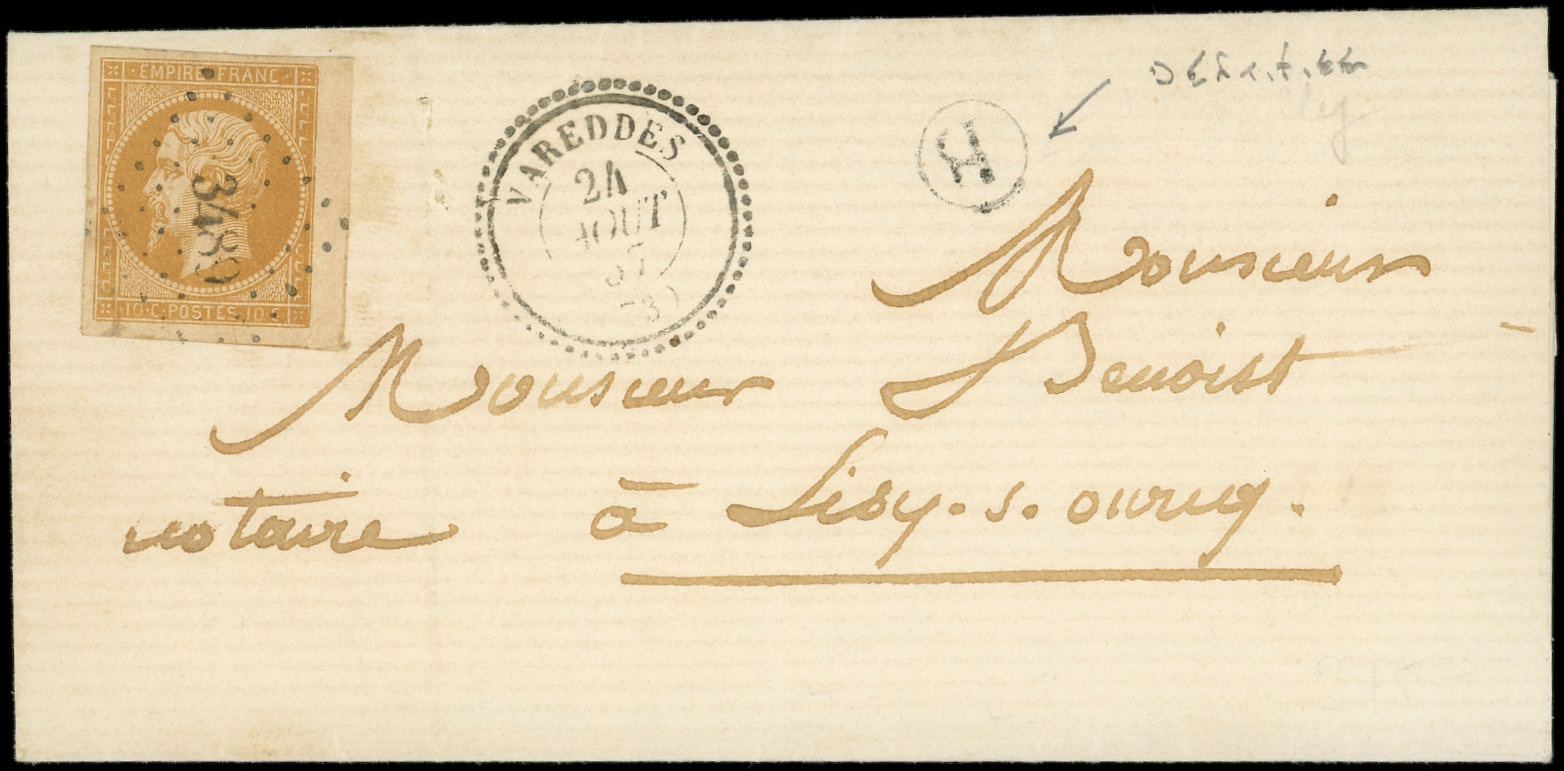 EMPIRE FRANC
3489
10·C·POSTES·10·
VAREDDES
24
AOUT
57
Monsieur
Monsieur Benoist
notaire à Lisy.s.ourcq.